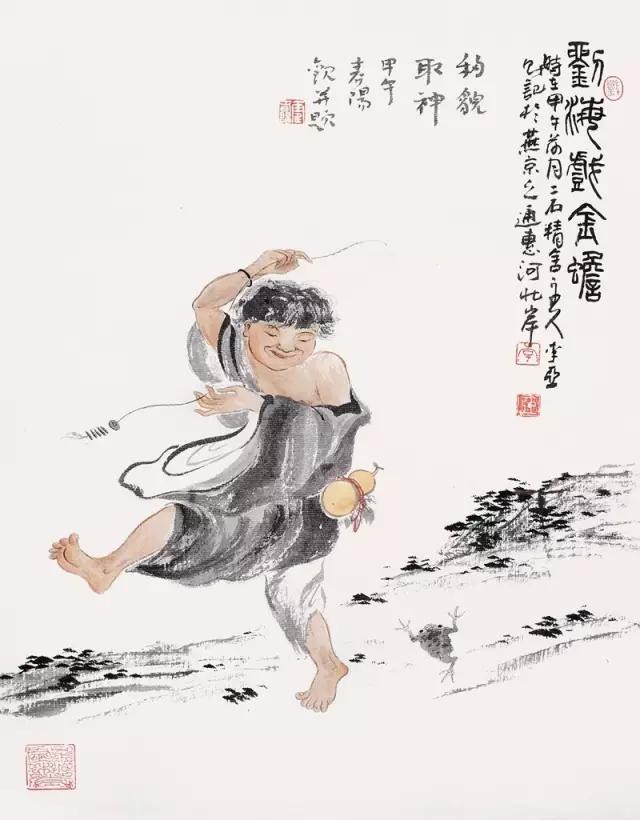 劉海戲金蟾
時在甲午月二石精舍主人李亞
記於燕京之通惠河北岸
貌
取神
甲午
春陽
并題